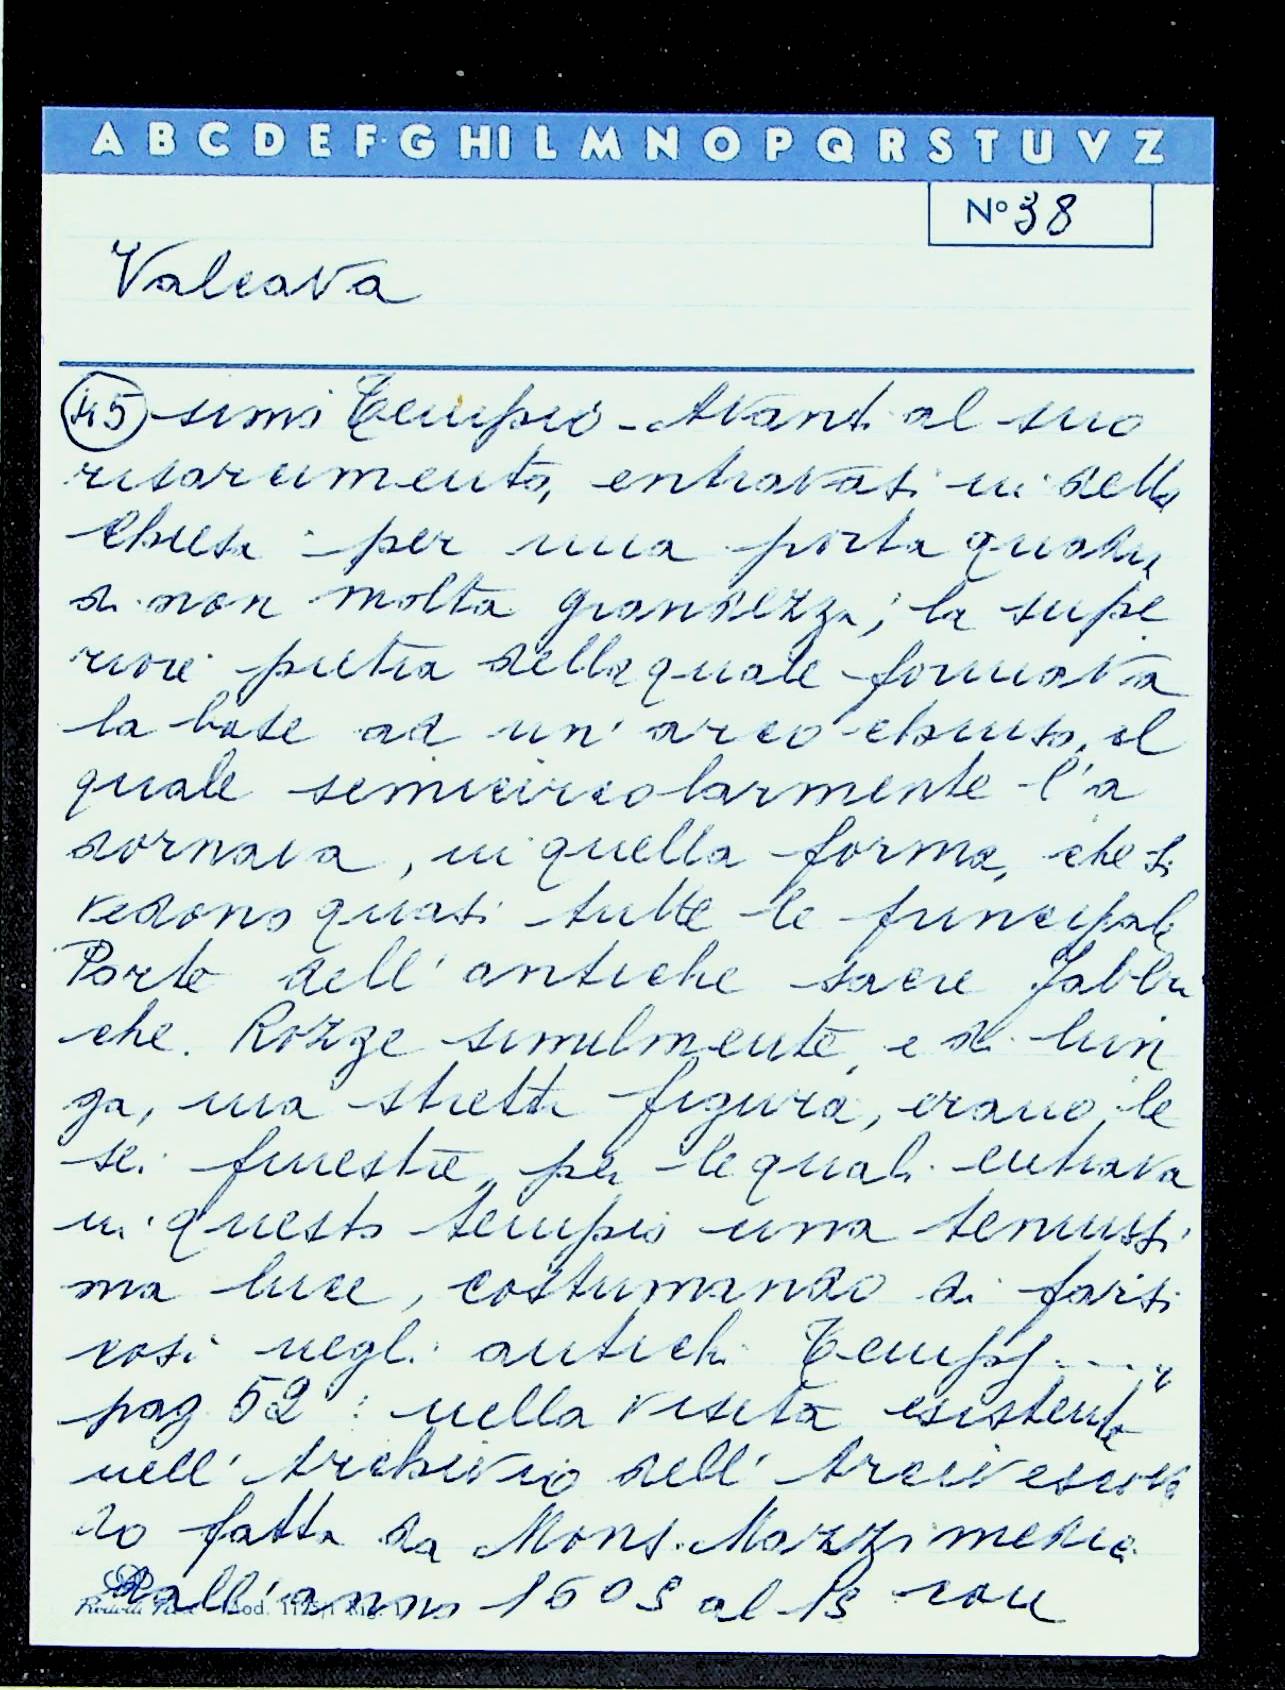 A B C D E F G H I L M N O P Q R S T U V Z
N° 38
Valcava
45 simi Tempio - Avanti al suo
risarcimento, entravasi in della
Chiesa per una porta quadra
di non molta grandezza; la supe
riore pietra della quale formava
la base ad un' arco chiuso, il
quale semicircolarmente l'a
dornava, in quella forma, che si
vedono quasi tutte le principali
Porte dell'antiche sacre fabbri
che. Rozze similmente, e di lun
ga, ma stretta figura, erano, le
sei finestre, per le quali entrava
in questo tempio una tenuissi
ma luce, costumando di farsi
così negli antichi Tempj.....
pag 52: nella visita esistente
nell'Archivio dell'Arcivescova
do fatta da Mons. Mazzimedici
dall'anno 16 al cou